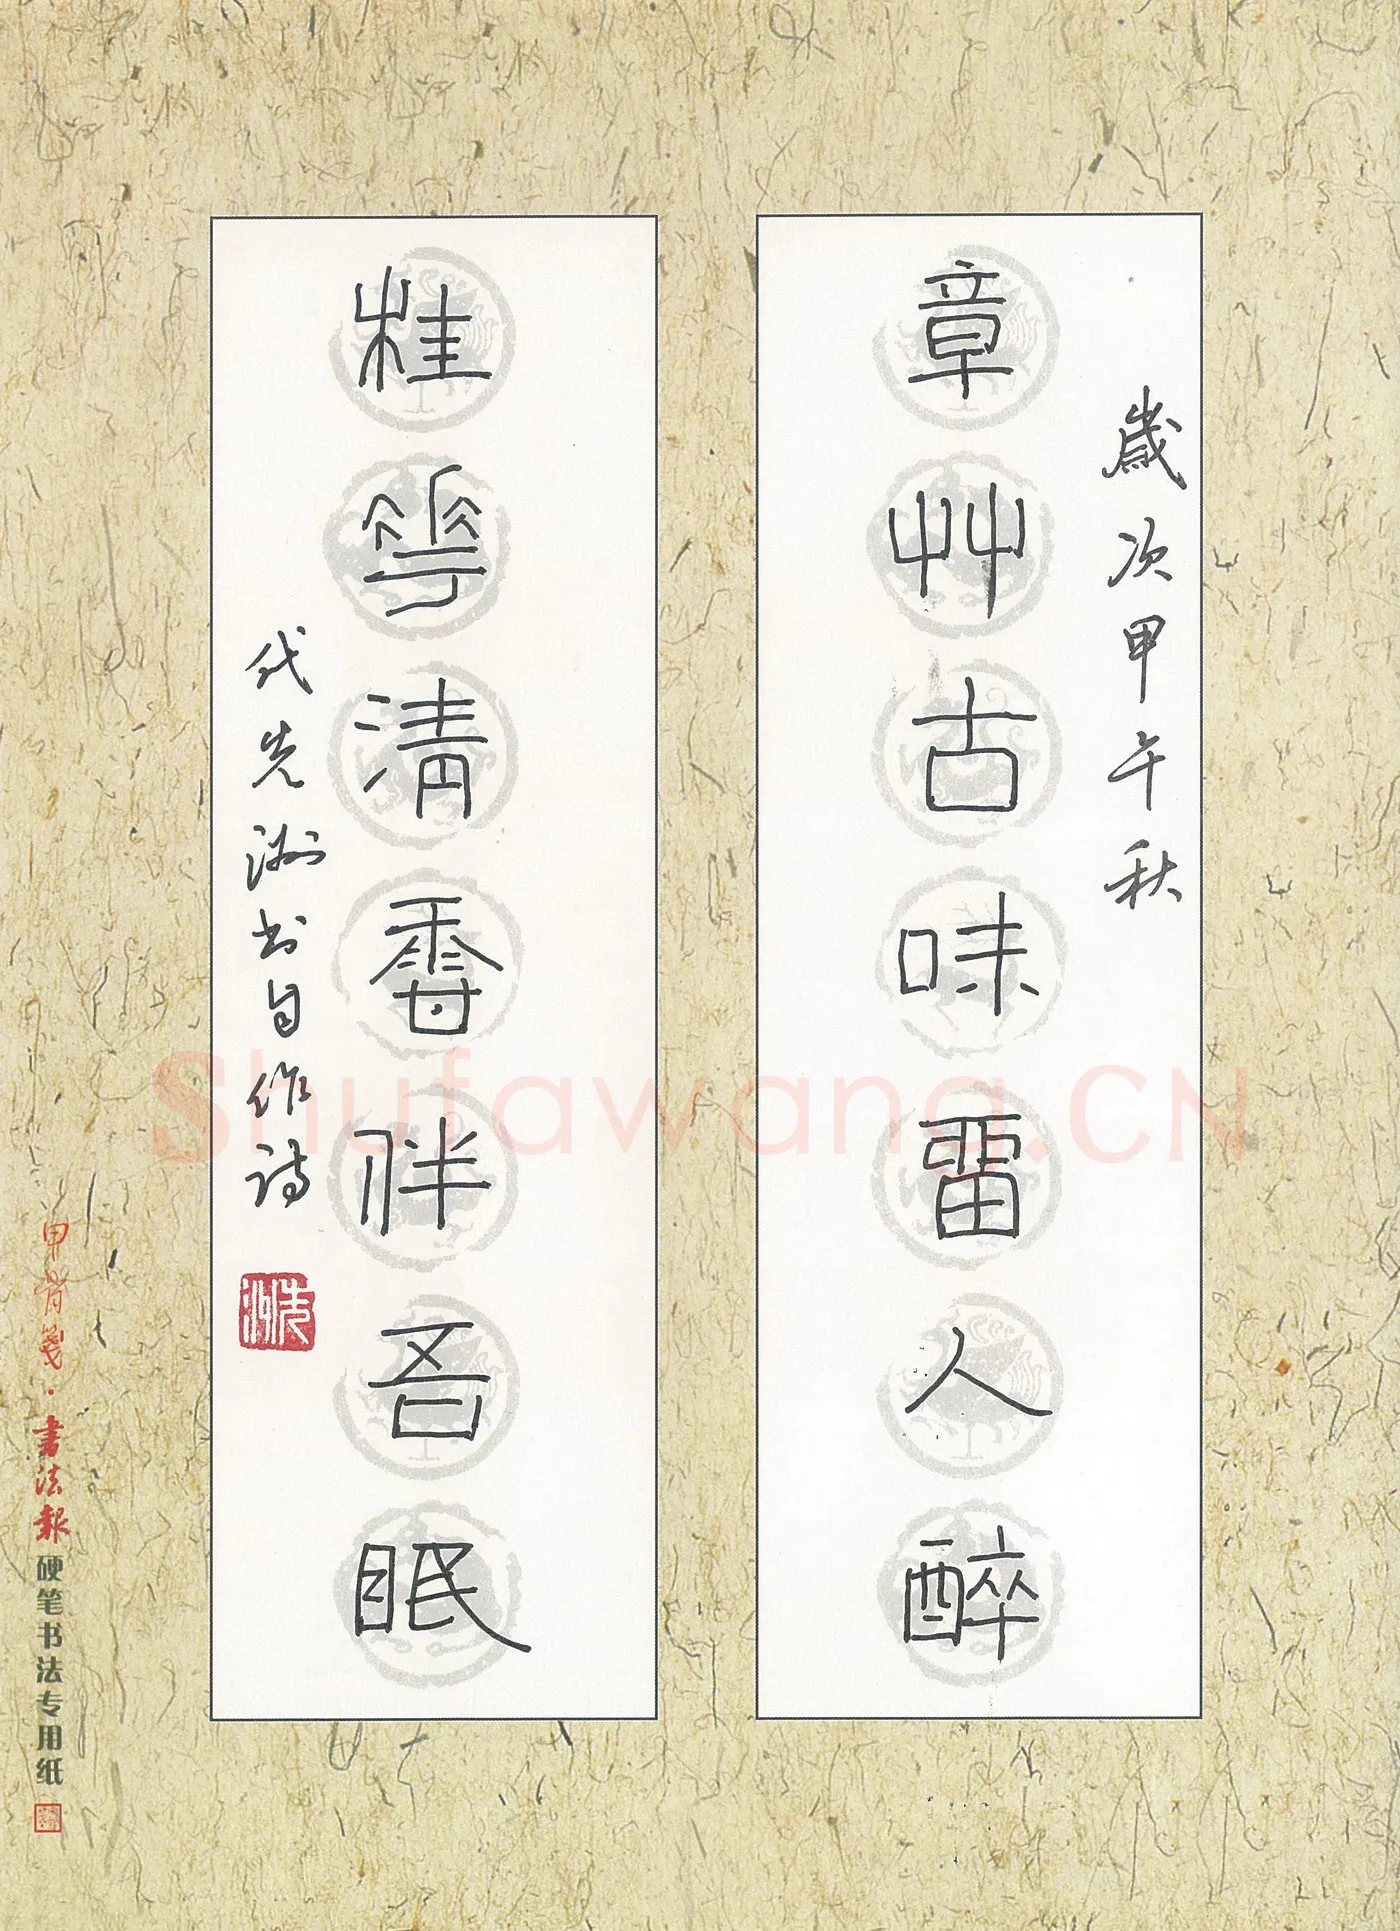 歲次甲午秋
章艸古味畱人醉
桂華清香伴吾眠
代先洲书自作诗
先洲
甲骨箋·書法報硬笔书法专用纸
Shufawang.CN